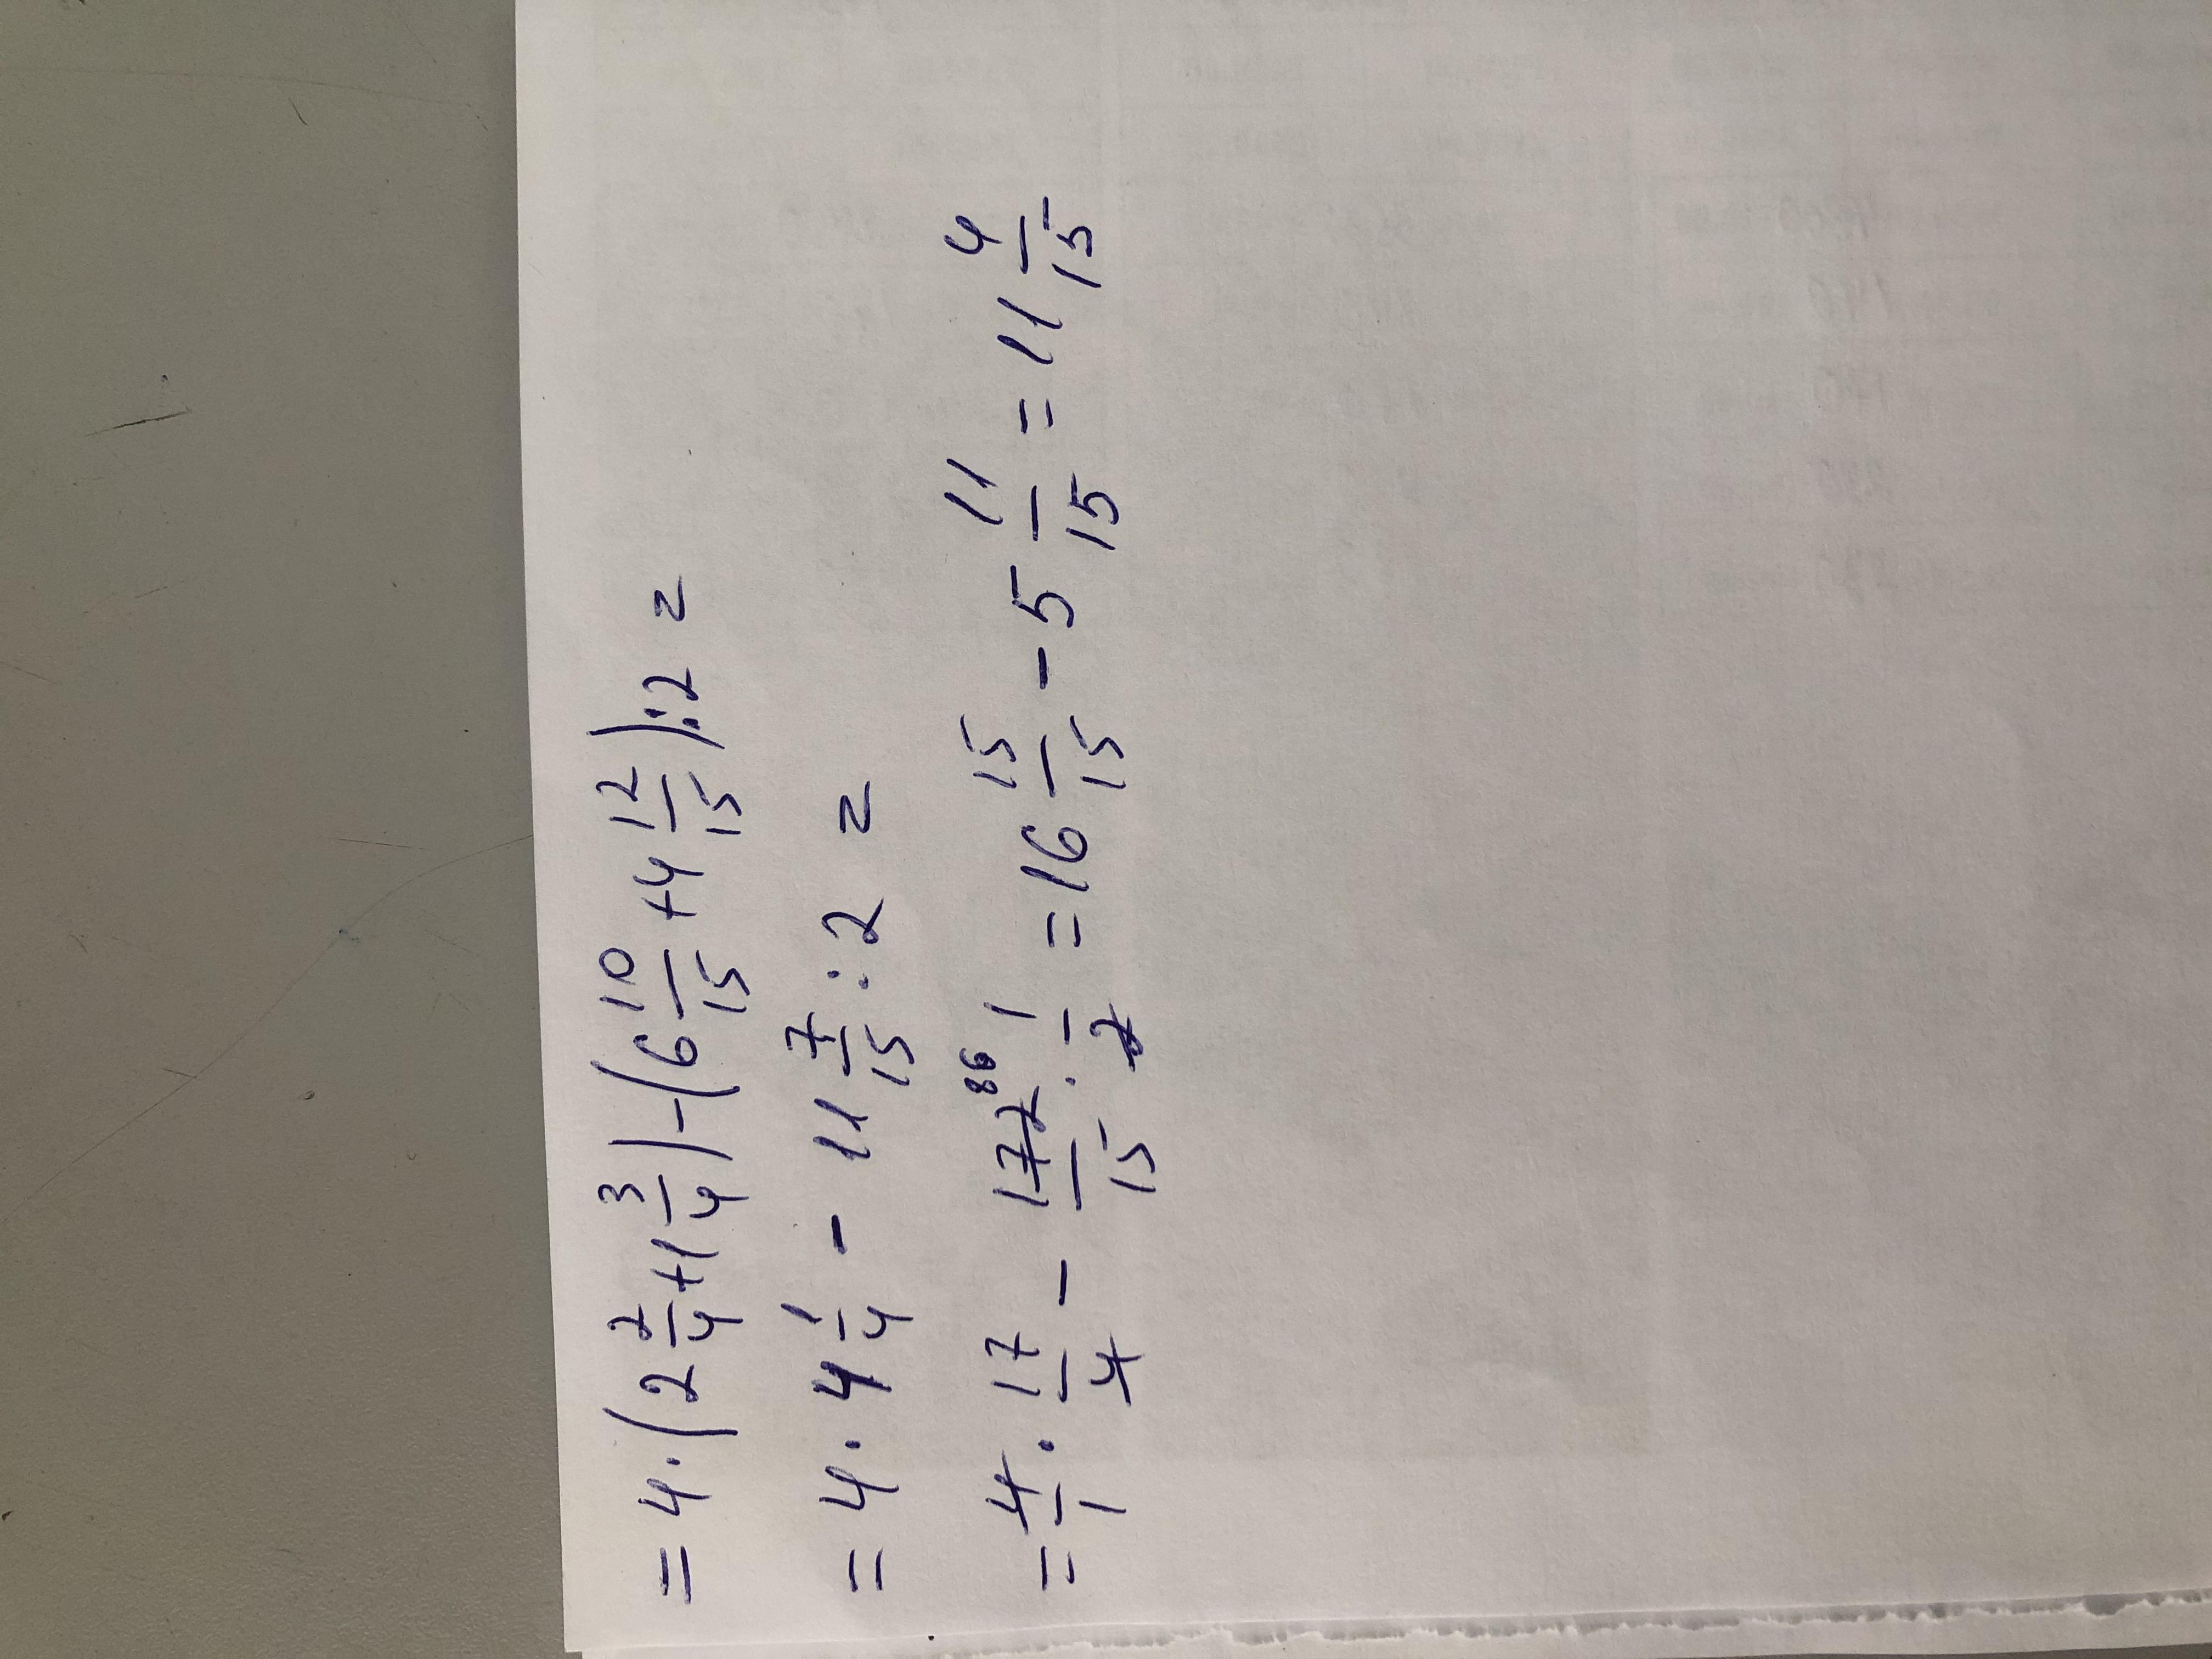 = 4 · (2 2/4 + 1 3/4) - (6 10/15 + 4 12/15) : 2 =
= 4 · 4 1/4 - 11 7/15 : 2 =
= 4/1 · 17/4 - 172 86/15 · 1/2 = 16 15/15 - 5 11/15 = 11 4/15